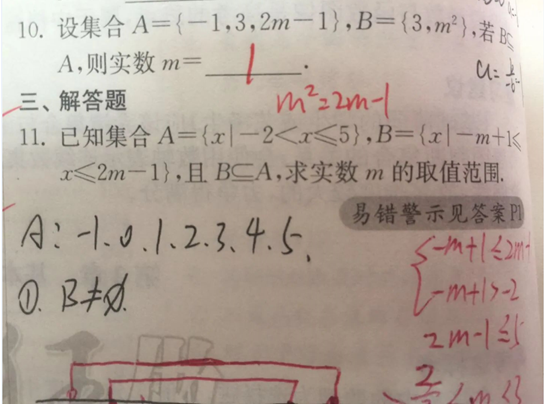 10. 设集合 A={-1,3,2m-1},B={3,m²},若 B⊆
A,则实数 m= 1 .
m²=2m-1
三、解答题
11. 已知集合 A={x|-2<x≤5},B={x|-m+1≤
x≤2m-1},且 B⊆A,求实数 m 的取值范围.
易错警示见答案P1
A: -1.0.1.2.3.4.5.
-m+1≤2m-1
①. B≠∅.
-m+1>-2
2m-1≤5